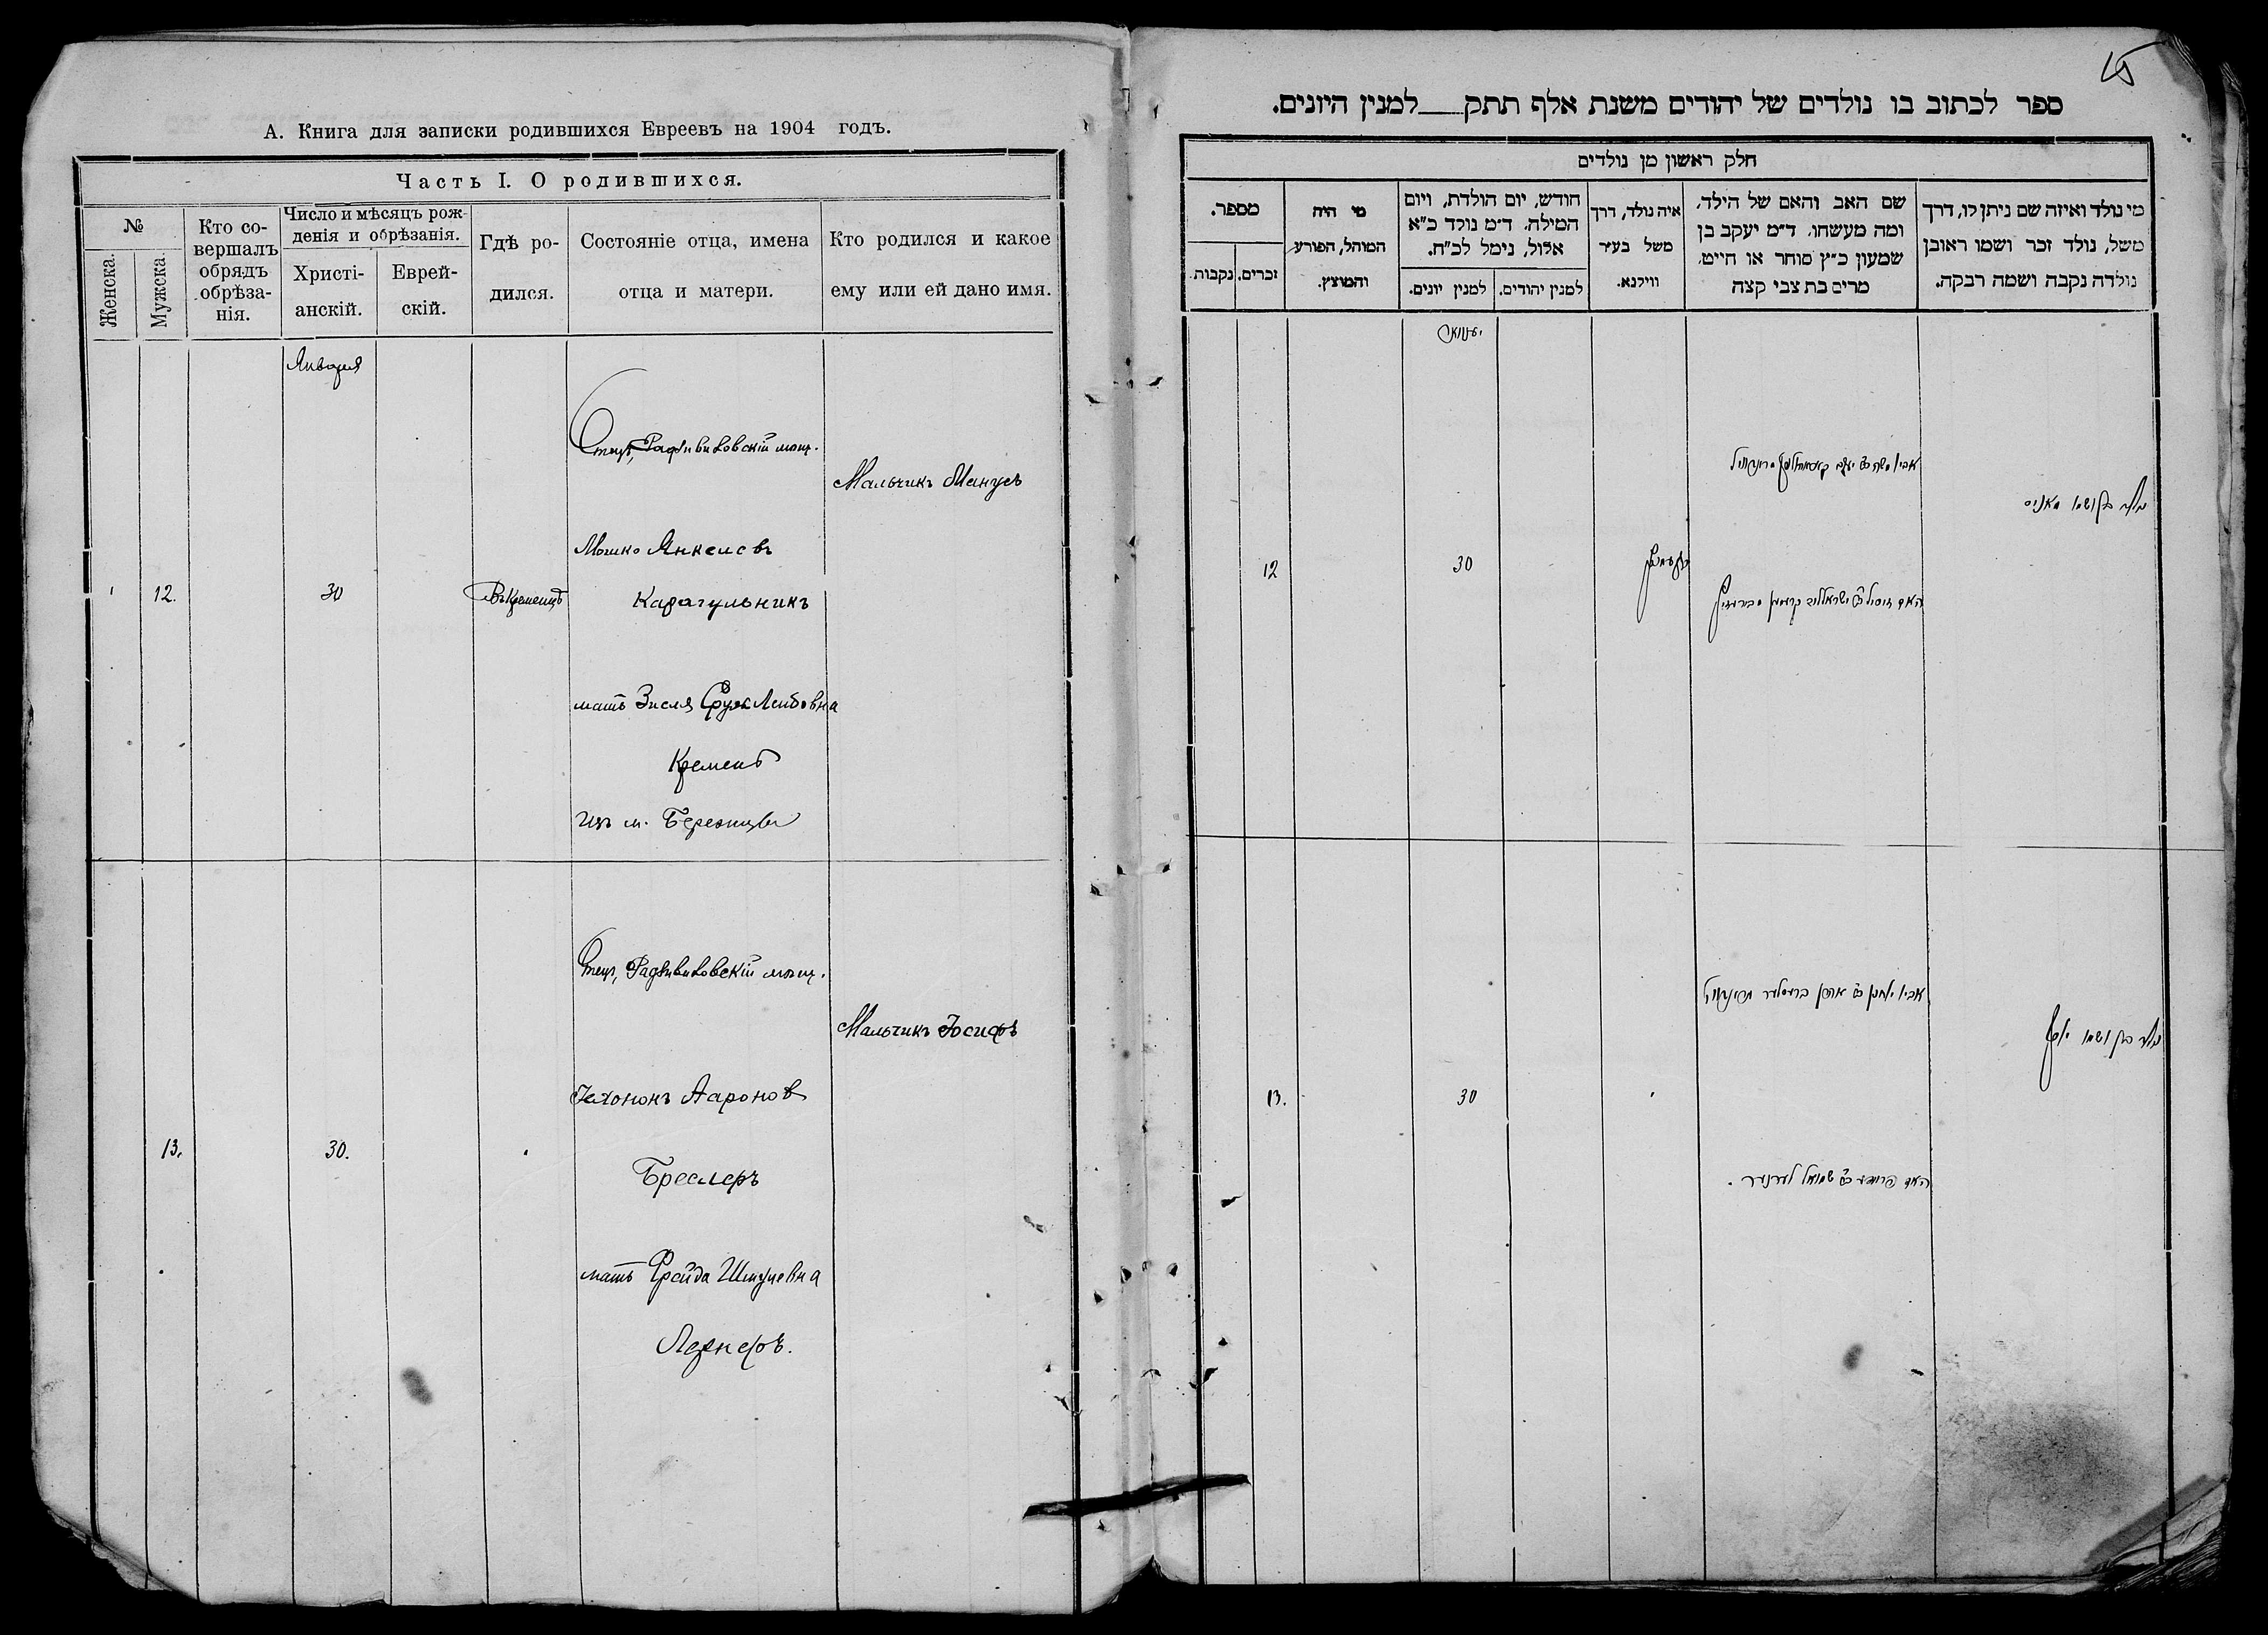 А. Книга для записки родившихся Евреевъ на 1904 годъ.
Часть I. О родившихся.
№
Женска.
Мужска.
Кто со-
вершалъ
обрядъ
обрѣза-
нія.
Число и мѣсяцъ рож-
денія и обрѣзанія.
Христі-
анскій.
Еврей-
скій.
Гдѣ ро-
дился.
Состояніе отца, имена
отца и матери.
Кто родился и какое
ему или ей дано имя.
Января
Отецъ, Радзивиловскій мѣщ.
Мальчикъ Манусъ
Мошко Янкелевъ
12.
30
Въ Кременцѣ
Карагульникъ
мать Зисля Сруль Лейбовна
Кремень
изъ м. Бережцы
Отецъ, Радзивиловскій мѣщ.
Мальчикъ Іосифъ
Іехононъ Аароновъ
13.
30.
Бреслеръ
мать Фрейда Шмулевна
Лернеръ.
15
ספר לכתוב בו נולדים של יהודים משנת אלף תתק למנין היונים.
חלק ראשון מן נולדים
מי נולד ואיזה שם ניתן לו, דרך
משל, נולד זכר ושמו ראובן
נולדה נקבה ושמה רבקה.
שם האב והאם של הילד,
ומה מעשהו, ד״מ יעקב בן
שמעון כ״ץ סוחר או חייט,
מרים בת צבי קצה
איה נולד, דרך
משל בע״ר
ווילנא.
חודש, יום הולדת, ויום
המילה, ד״מ נולד כ״א
אלול, נימל לכ״ח.
למנין יהודים.
למנין יונים.
מי היה
המוהל, הפורע
והמוצץ.
מספר.
זכרים.
נקבות.
אביו משה ב״ר יעקב
נולד בן ושמו מאניס
12
30
אביו יוחנן ב״ר אהרן ברעסלער
נולד בן ושמו יוסף
13.
30
האם פריידע ב״ר שמואל לערנער.